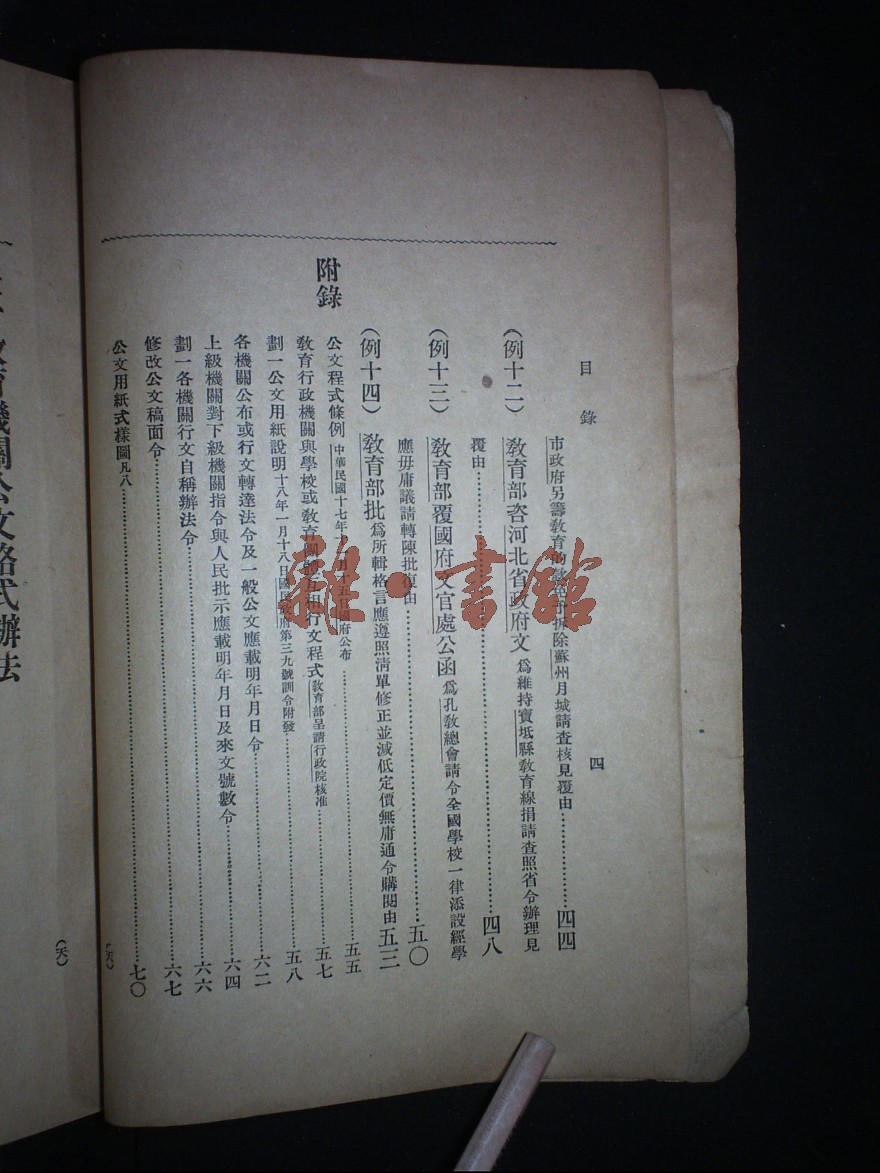 目錄
四
市政府另籌教育的款免予拆除蘇州月城請查核見覆由 四四
（例十二） 教育部咨河北省政府文 爲維持寶坻縣教育線捐請查照省令辦理見
覆由 四八
（例十三） 教育部覆國府文官處公函 爲孔教總會請令全國學校一律添設經學
應毋庸議請轉陳批復由 五〇
（例十四） 教育部批 爲所輯格言應遵照淸單修正並減低定價無庸通令購閱由 五三
附錄
公文程式條例 中華民國十七年 月十五日國府公布 五五
教育行政機關與學校或教育團體互相行文程式 教育部呈請行政院核准 五七
劃一公文用紙說明 十八年一月十八日國民政府第三九號訓令附發 五八
各機關公布或行文轉達法令及一般公文應載明年月日令 六二
上級機關對下級機關指令與人民批示應載明年月日及來文號數令 六四
劃一各機關行文自稱辦法令 六六
修改公文稿面令 六七
公文用紙式樣圖凡八 七〇
教育機關公文格式辦法
雜·書館